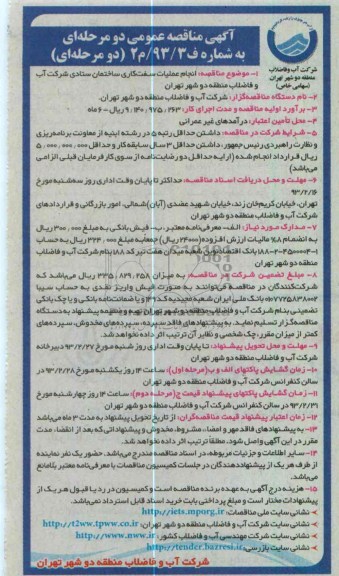 آگهی مناقصه عمومی دو مرحله‌ای
به شماره ف/۹۳/۳/م۲ (دو مرحله‌ای)
شرکت آب و فاضلاب
منطقه دو شهر تهران
(سهامی خاص)
۱- موضوع مناقصه: انجام عملیات سفت‌کاری ساختمان ستادی شرکت آب
و فاضلاب منطقه دو شهر تهران
۲- نام دستگاه مناقصه‌گزار: شرکت آب و فاضلاب منطقه دو شهر تهران.
۳- برآورد اولیه مناقصه و مدت اجرای کار: ۹،۱۴۰،۹۷۵،۲۶۳ ریال - ۶ ماه
۴- محل تأمین اعتبار: درآمدهای غیر عمرانی
۵- شرایط شرکت در مناقصه: داشتن حداقل رتبه ۵ در رشته ابنیه از معاونت برنامه‌ریزی
و نظارت راهبردی رئیس جمهور، داشتن حداقل ۳ سال سابقه کار و حداقل ۵،۰۰۰،۰۰۰،۰۰۰
ریال قرارداد انجام شده (ارایه حداقل دو رضایت‌نامه از سوی کارفرمایان قبلی الزامی
می‌باشد)
۶- مهلت و محل دریافت اسناد مناقصه: حداکثر تا پایان وقت اداری روز سه‌شنبه مورخ
۹۳/۲/۱۶
تهران، خیابان کریم‌خان زند، خیابان شهید عضدی (آبان) شمالی، امور بازرگانی و قراردادهای
شرکت آب و فاضلاب منطقه دو شهر تهران
۷- مدارک مورد نیاز: الف- معرفی‌نامه معتبر، ب- فیش بانکی به مبلغ ۳۰۰،۰۰۰ ریال
به انضمام ۸٪ مالیات ارزش افزوده (۲۴۰۰۰ ریال) جمعاً به مبلغ ۳۲۴،۰۰۰ ریال به حساب
بانک اقتصاد نوین شعبه میدان هفت تیر کد ۱۸۸ بنام شرکت آب و فاضلاب
منطقه دو شهر تهران
۸- مبلغ تضمین شرکت در مناقصه: به میزان ۳۳۵،۸۲۹،۲۵۸ ریال می‌باشد که
شرکت‌کنندگان در مناقصه می‌توانند به صورت فیش واریز نقدی به حساب سیبا
بانک ملی ایران شعبه مجیدیه کد و یا ضمانت‌نامه بانکی و یا چک بانکی
تضمینی بنام شرکت آب و فاضلاب منطقه دو شهر تهران تهیه و ضمیمه پیشنهاد به دستگاه
مناقصه‌گزار تسلیم نماید. به پیشنهادهای فاقد سپرده، سپرده‌های مخدوش، سپرده‌های
کمتر از میزان مقرر، چک شخصی و نظایر آن ترتیب اثر داده نخواهد شد.
۹- مهلت و محل تحویل پیشنهاد: تا پایان وقت اداری روز شنبه مورخ ۹۳/۲/۲۷ دبیرخانه
شرکت آب و فاضلاب منطقه دو شهر تهران
۱۰- زمان گشایش پاکتهای الف و ب (مرحله اول): ساعت ۱۴ روز یکشنبه مورخ ۹۳/۲/۲۸ در
سالن کنفرانس شرکت آب و فاضلاب منطقه دو شهر تهران
۱۱- زمان گشایش پاکتهای پیشنهاد قیمت ج (مرحله دوم): ساعت ۱۴ روز چهارشنبه مورخ
۹۳/۲/۳۱ در سالن کنفرانس شرکت آب و فاضلاب منطقه دو شهر تهران
۱۲- زمان اعتبار پیشنهاد قیمت مناقصه‌گران: از تاریخ تحویل پیشنهاد به مدت ۳ ماه می‌باشد
۱۳- به پیشنهادهای فاقد مهر و امضاء، مشروط، مخدوش و پیشنهاداتی که بعد از انقضاء مدت
مقرر در این آگهی واصل شود، مطلقاً ترتیب اثر داده نخواهد شد.
۱۴- سایر اطلاعات و جزئیات مربوطه، در اسناد مناقصه مندرج می‌باشد. حضور یک نفر نماینده
از طرف هر یک از پیشنهاددهندگان در جلسات کمیسیون مناقصات با معرفی‌نامه معتبر بلامانع
می‌باشد.
۱۵- هزینه درج آگهی به عهده برنده مناقصه است و کمیسیون در رد یا قبول هر یک از
پیشنهادات مختار است و مبلغ پرداختی بابت خرید اسناد قابل استرداد نمی‌باشد.
نشانی سایت ملی مناقصات: http://iets.mporg.ir
نشانی سایت شرکت آب و فاضلاب منطقه دو شهر تهران: http://t2ww.tpww.co.ir
نشانی سایت شرکت مهندسی آب و فاضلاب کشور: http://www.nww.ir
نشانی سایت بازرسی: http://tender.bazresi.ir
شرکت آب و فاضلاب منطقه دو شهر تهران